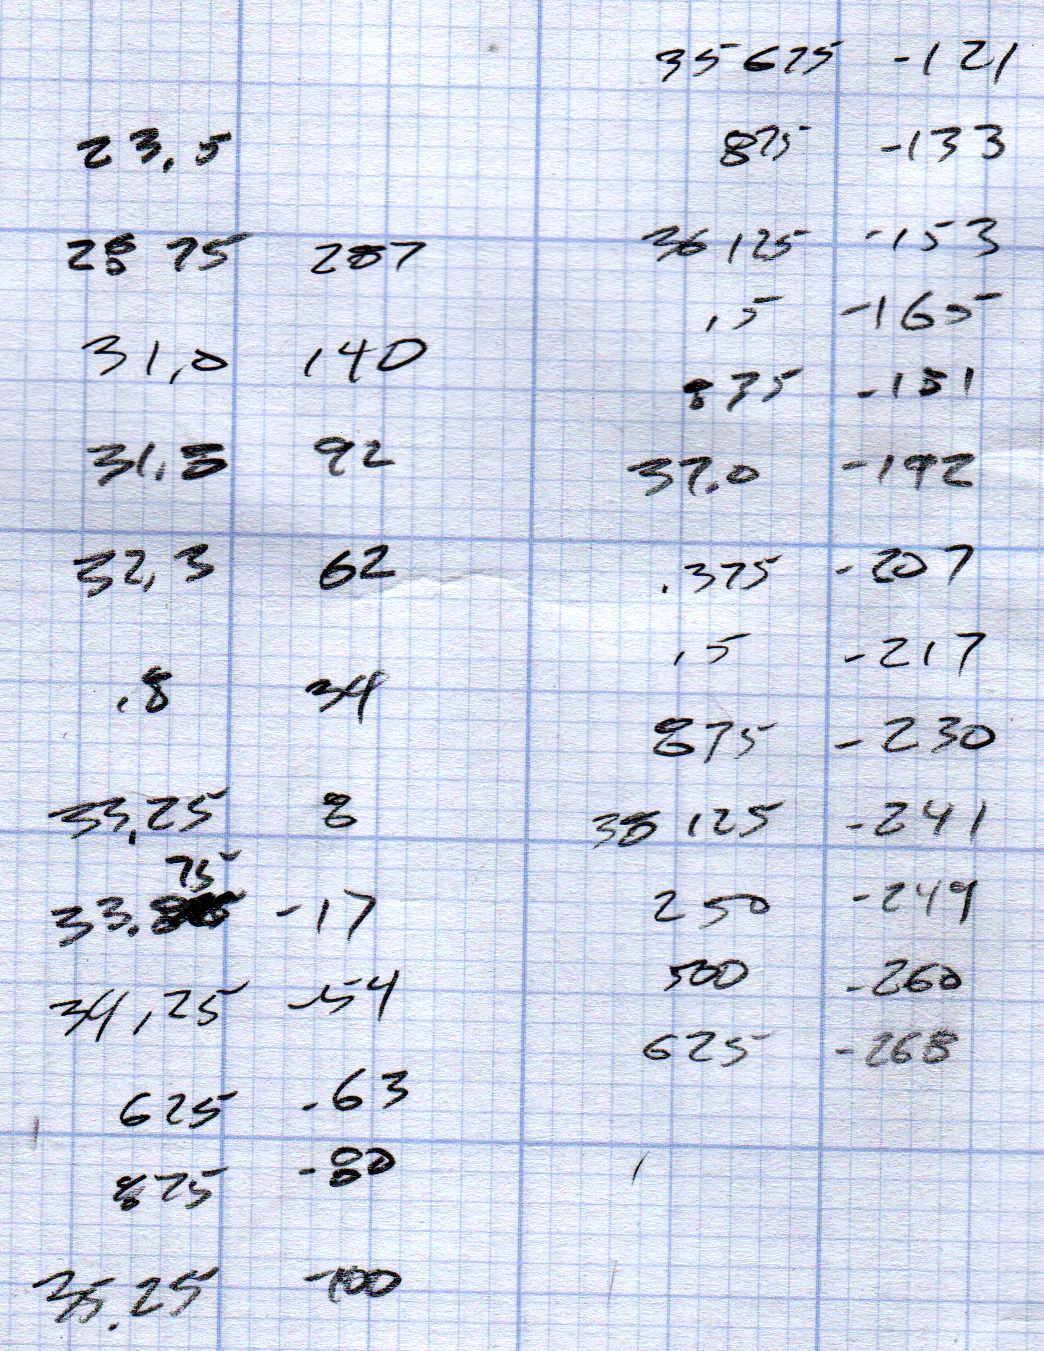 23.5
28 75 207
31.0 140
31.8 92
32.3 62
.8 34
33.25 8
75
33. -17
34.25 -54
625 -63
875 -80
35.25 -100
35 625 -121
875 -133
36 125 -153
.5 -165
875 -181
37.0 -192
.375 -207
.5 -217
875 -230
38 125 -241
250 -249
500 -260
625 -268